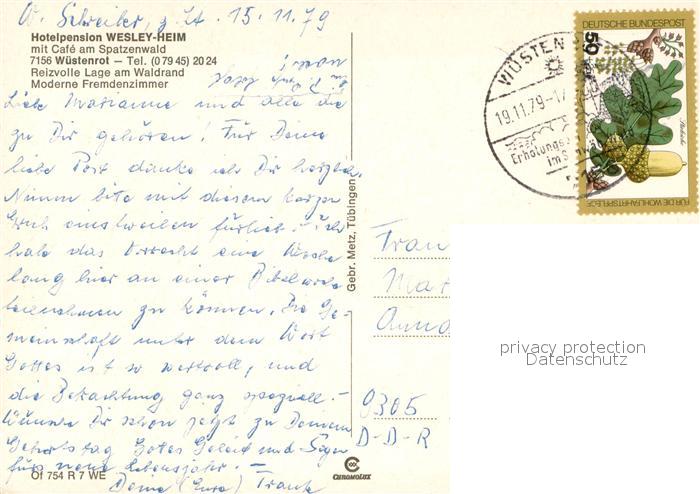 W. Schreiber, z. Zt. 15.11.79
Hotelpension WESLEY-HEIM
mit Café am Spatzenwald
7156 Wüstenrot — Tel. (0 79 45) 20 24
Reizvolle Lage am Waldrand
Moderne Fremdenzimmer
Liebe Marianne und alle die
zu Dir gehören! Für Deine
liebe Post danke ich Dir herzlich.
Nimm bitte mit diesem kurzen
Gruß einstweilen fürlieb. – Ich
habe das Vorrecht eine Woche
lang hier an einer Bibelwoche
teilnehmen zu können. Die Ge-
meinschaft unter dem Wort
Gottes ist so wertvoll, und
die Betrachtung ganz speziell. –
Wünsche Dir schon jetzt zu Deinem
Geburtstag Gottes Geleit und Segen
fürs neue Lebensjahr. –
Deine (Eure)
Of 754 R 7 WE
Gebr. Metz, Tübingen
CHROMOLUX
DEUTSCHE BUNDESPOST
50
FÜR DIE WOHLFAHRTSPFLEGE
WÜSTEN
19.11.79-1
Erholungs
im
Frau
Mar
9305
D-D-R
privacy protection
Datenschutz